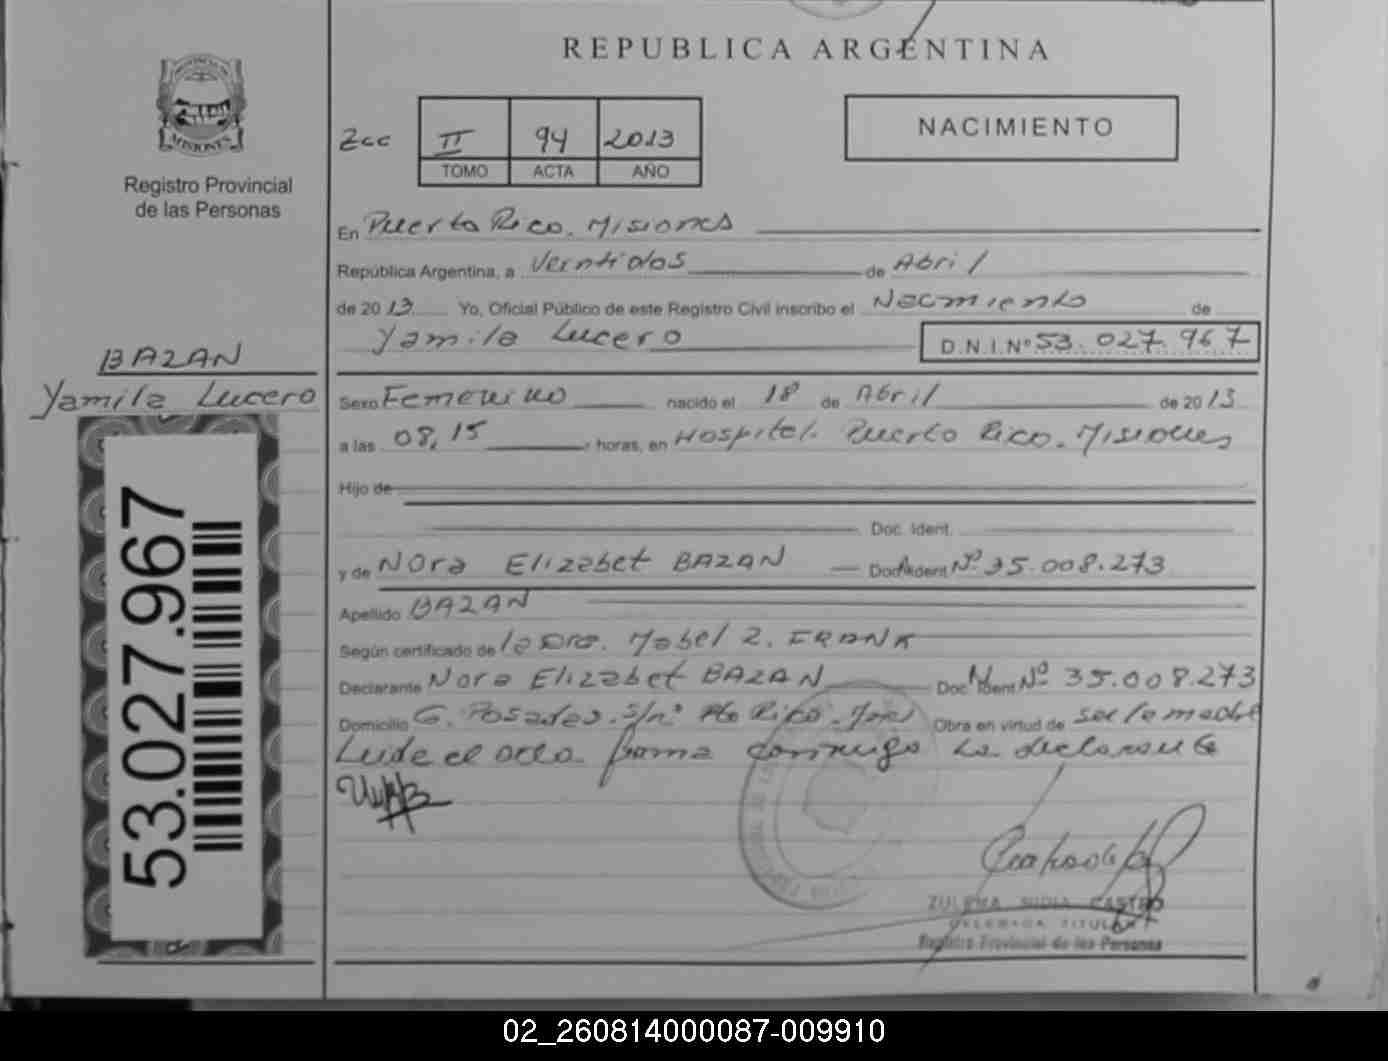 REPUBLICA ARGENTINA
PROVINCIA DE
MISIONES
Registro Provincial
de las Personas
Zcc II 94 2013
TOMO ACTA AÑO
NACIMIENTO
En Puerto Rico. Misiones
República Argentina, a Veintidos de Abril
de 2013 Yo, Oficial Público de este Registro Civil inscribo el Nacimiento de
Yamila Lucero D.N.I.Nº 53.027.967
BAZAN
Yamila Lucero
53.027.967
Sexo Femenino nacido el 18 de Abril de 2013
a las 08,15 horas, en Hospital. Puerto Rico. Misiones
Hijo de
Doc. Ident.
y de Nora Elizabet BAZAN Doc. Ident Nº 35.008.273
Apellido BAZAN
Según certificado de la Dra. Mabel Z. FRANK
Declarante Nora Elizabet BAZAN Doc. Ident Nº 35.008.273
Domicilio G. Posadas. S/nº Pto Rico. Mnes Obra en virtud de ser la madre
Leida el acta firma conmigo la declarante
ZULEMA NIDIA CASTRO
DELEGADA TITULAR
Registro Provincial de las Personas
02_260814000087-009910